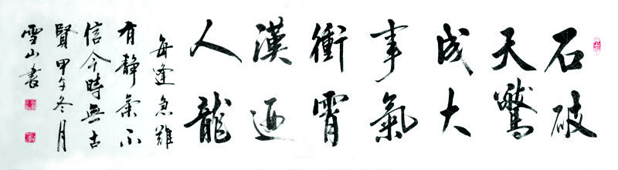 石破
天驚
成大
事氣
衝霄
漢迺
人龍
每逢急難
有靜氣不
信今時無古
賢甲午冬月
雪山書